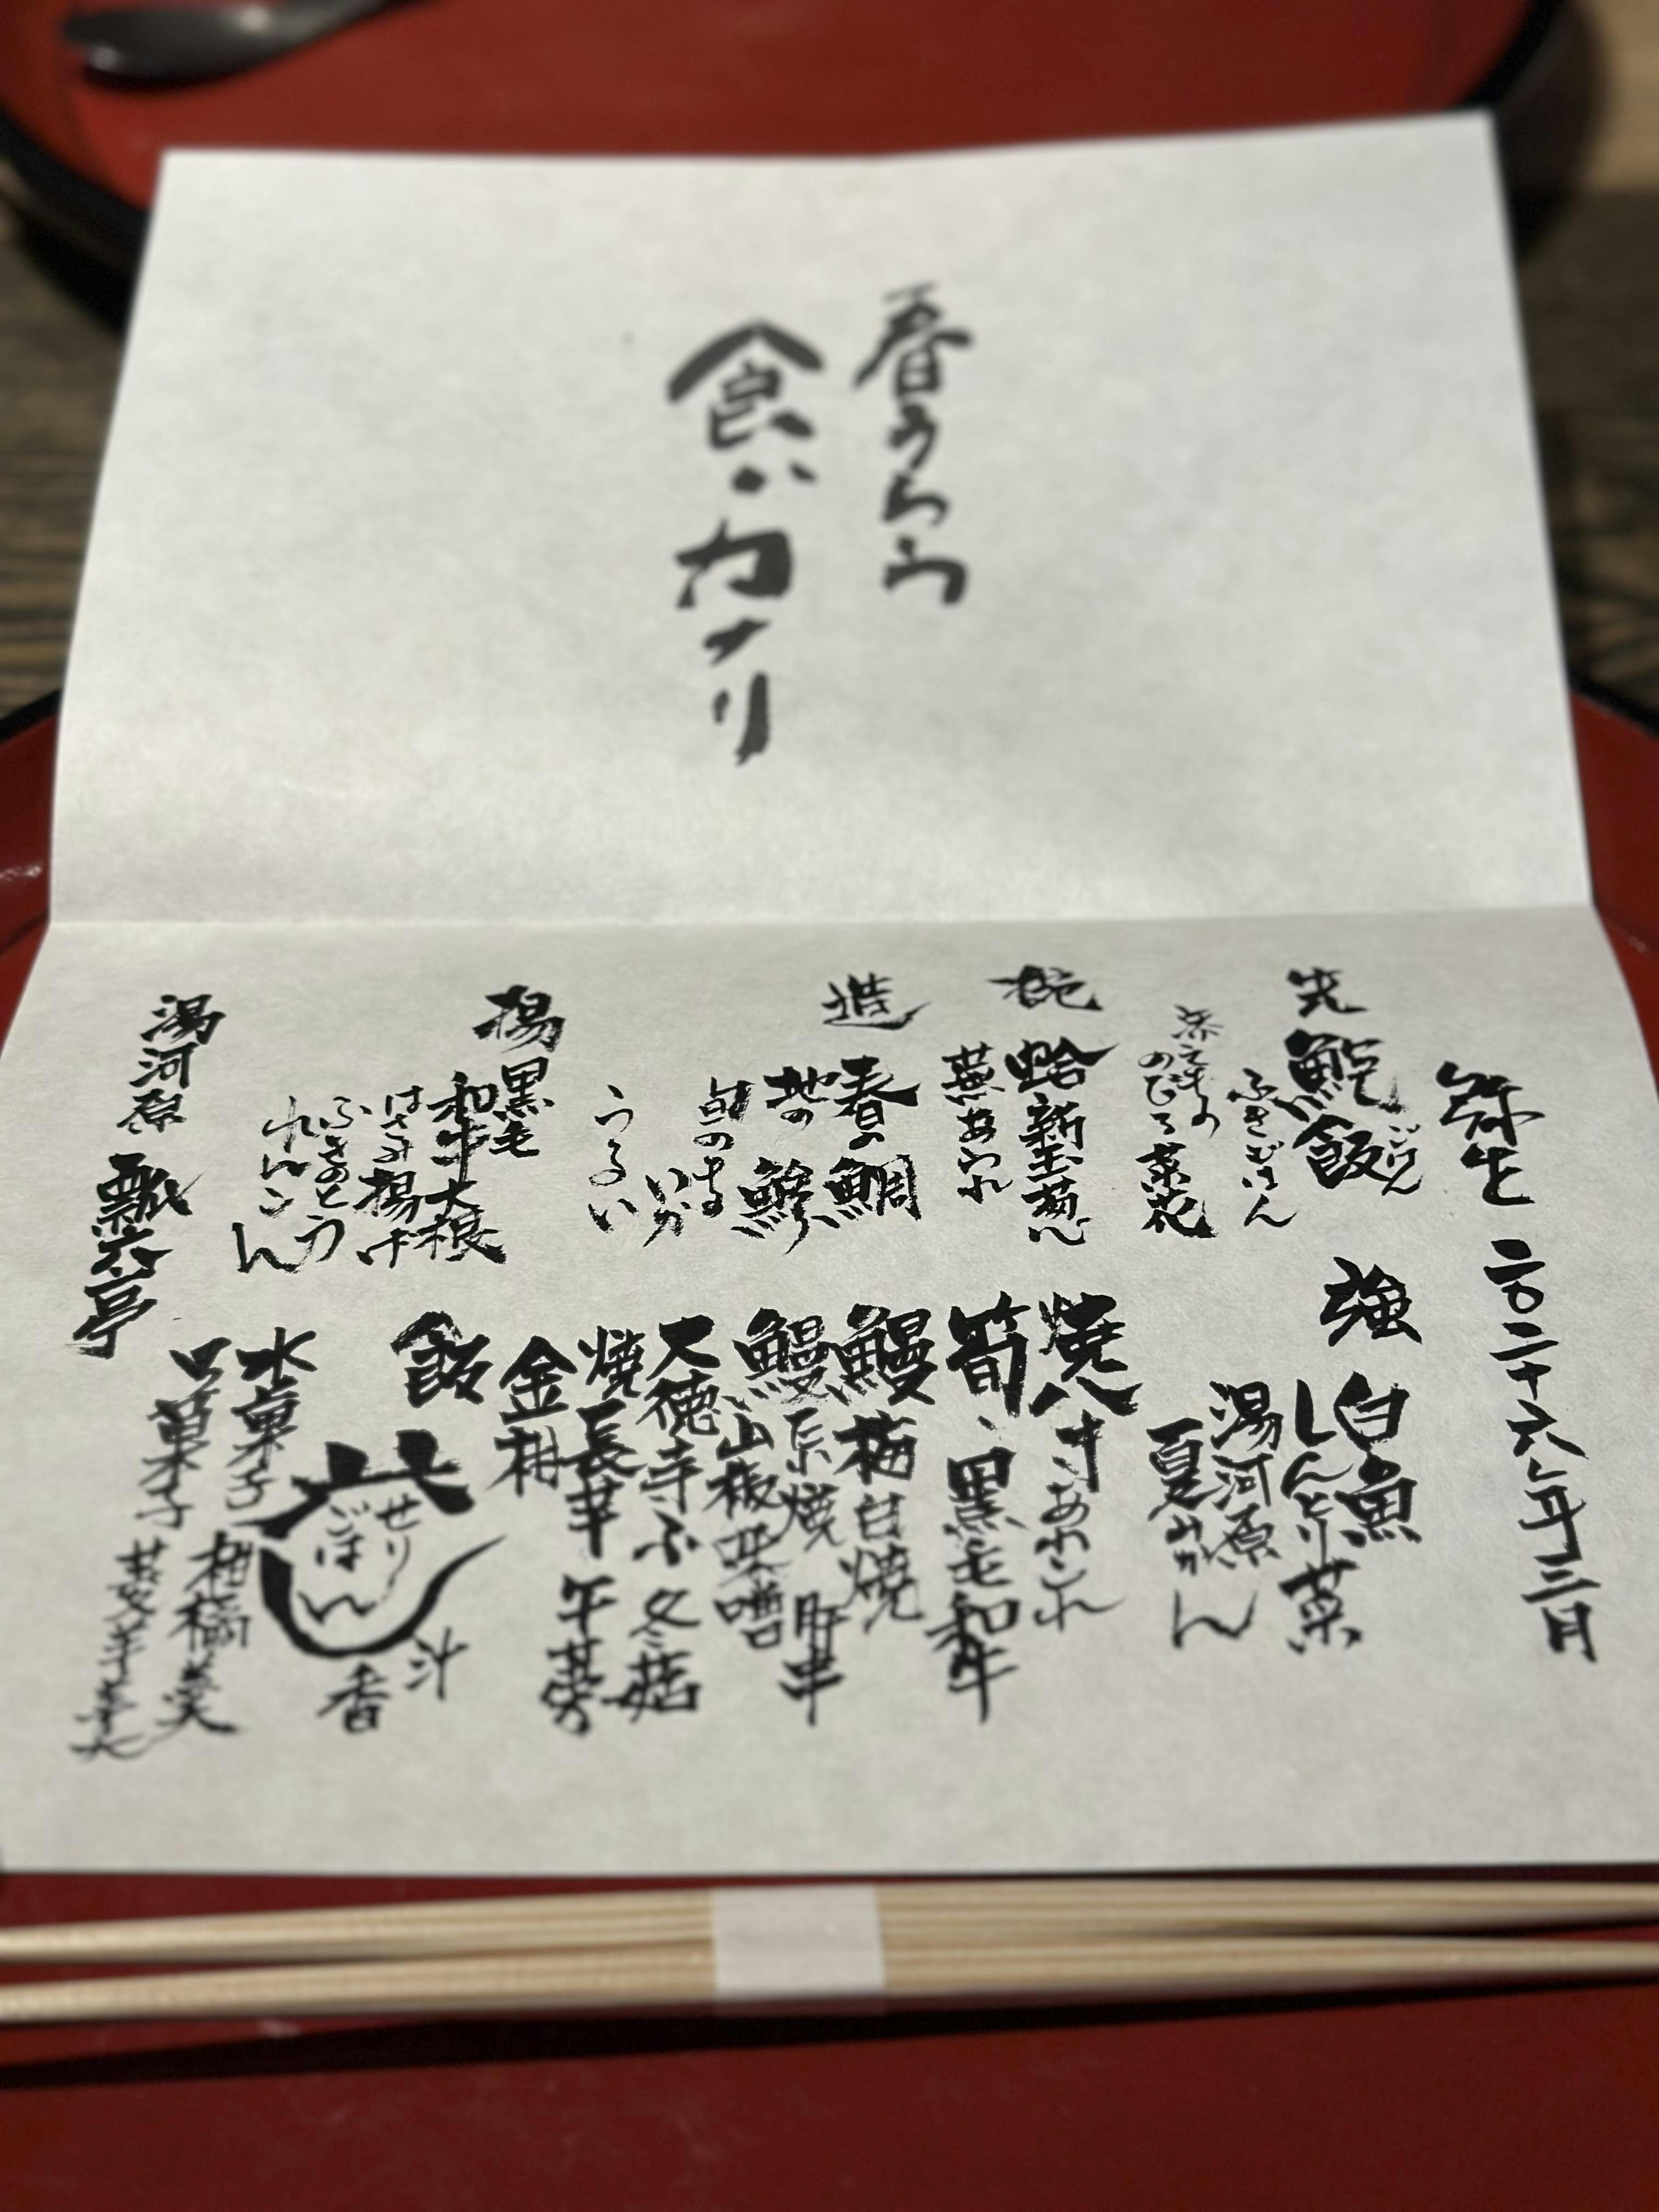 春うらら
食いカナリ
弥生 二〇二十六年三月
先 鮑飯 ごはん
ふきびはん
のびる 菜花
椀 蛤 新玉葱
蕪 あられ
造 春の鯛
地の鯵
旬の
いか
うるい
揚 黒毛
和牛 大根
はさみ揚げ
ふきのとう
れんこん
湯河原 瓢六亭
強 白魚
しんとり菜
湯河原
夏みかん
焼八寸 あれこれ
筍、黒毛和牛
鰻 梅 白焼
鰻 山椒味噌 肝串
大徳寺ふ 冬菇
焼長芋 牛蒡
金柑
飯
せり
ごはん
汁
香
水菓子
口菓子